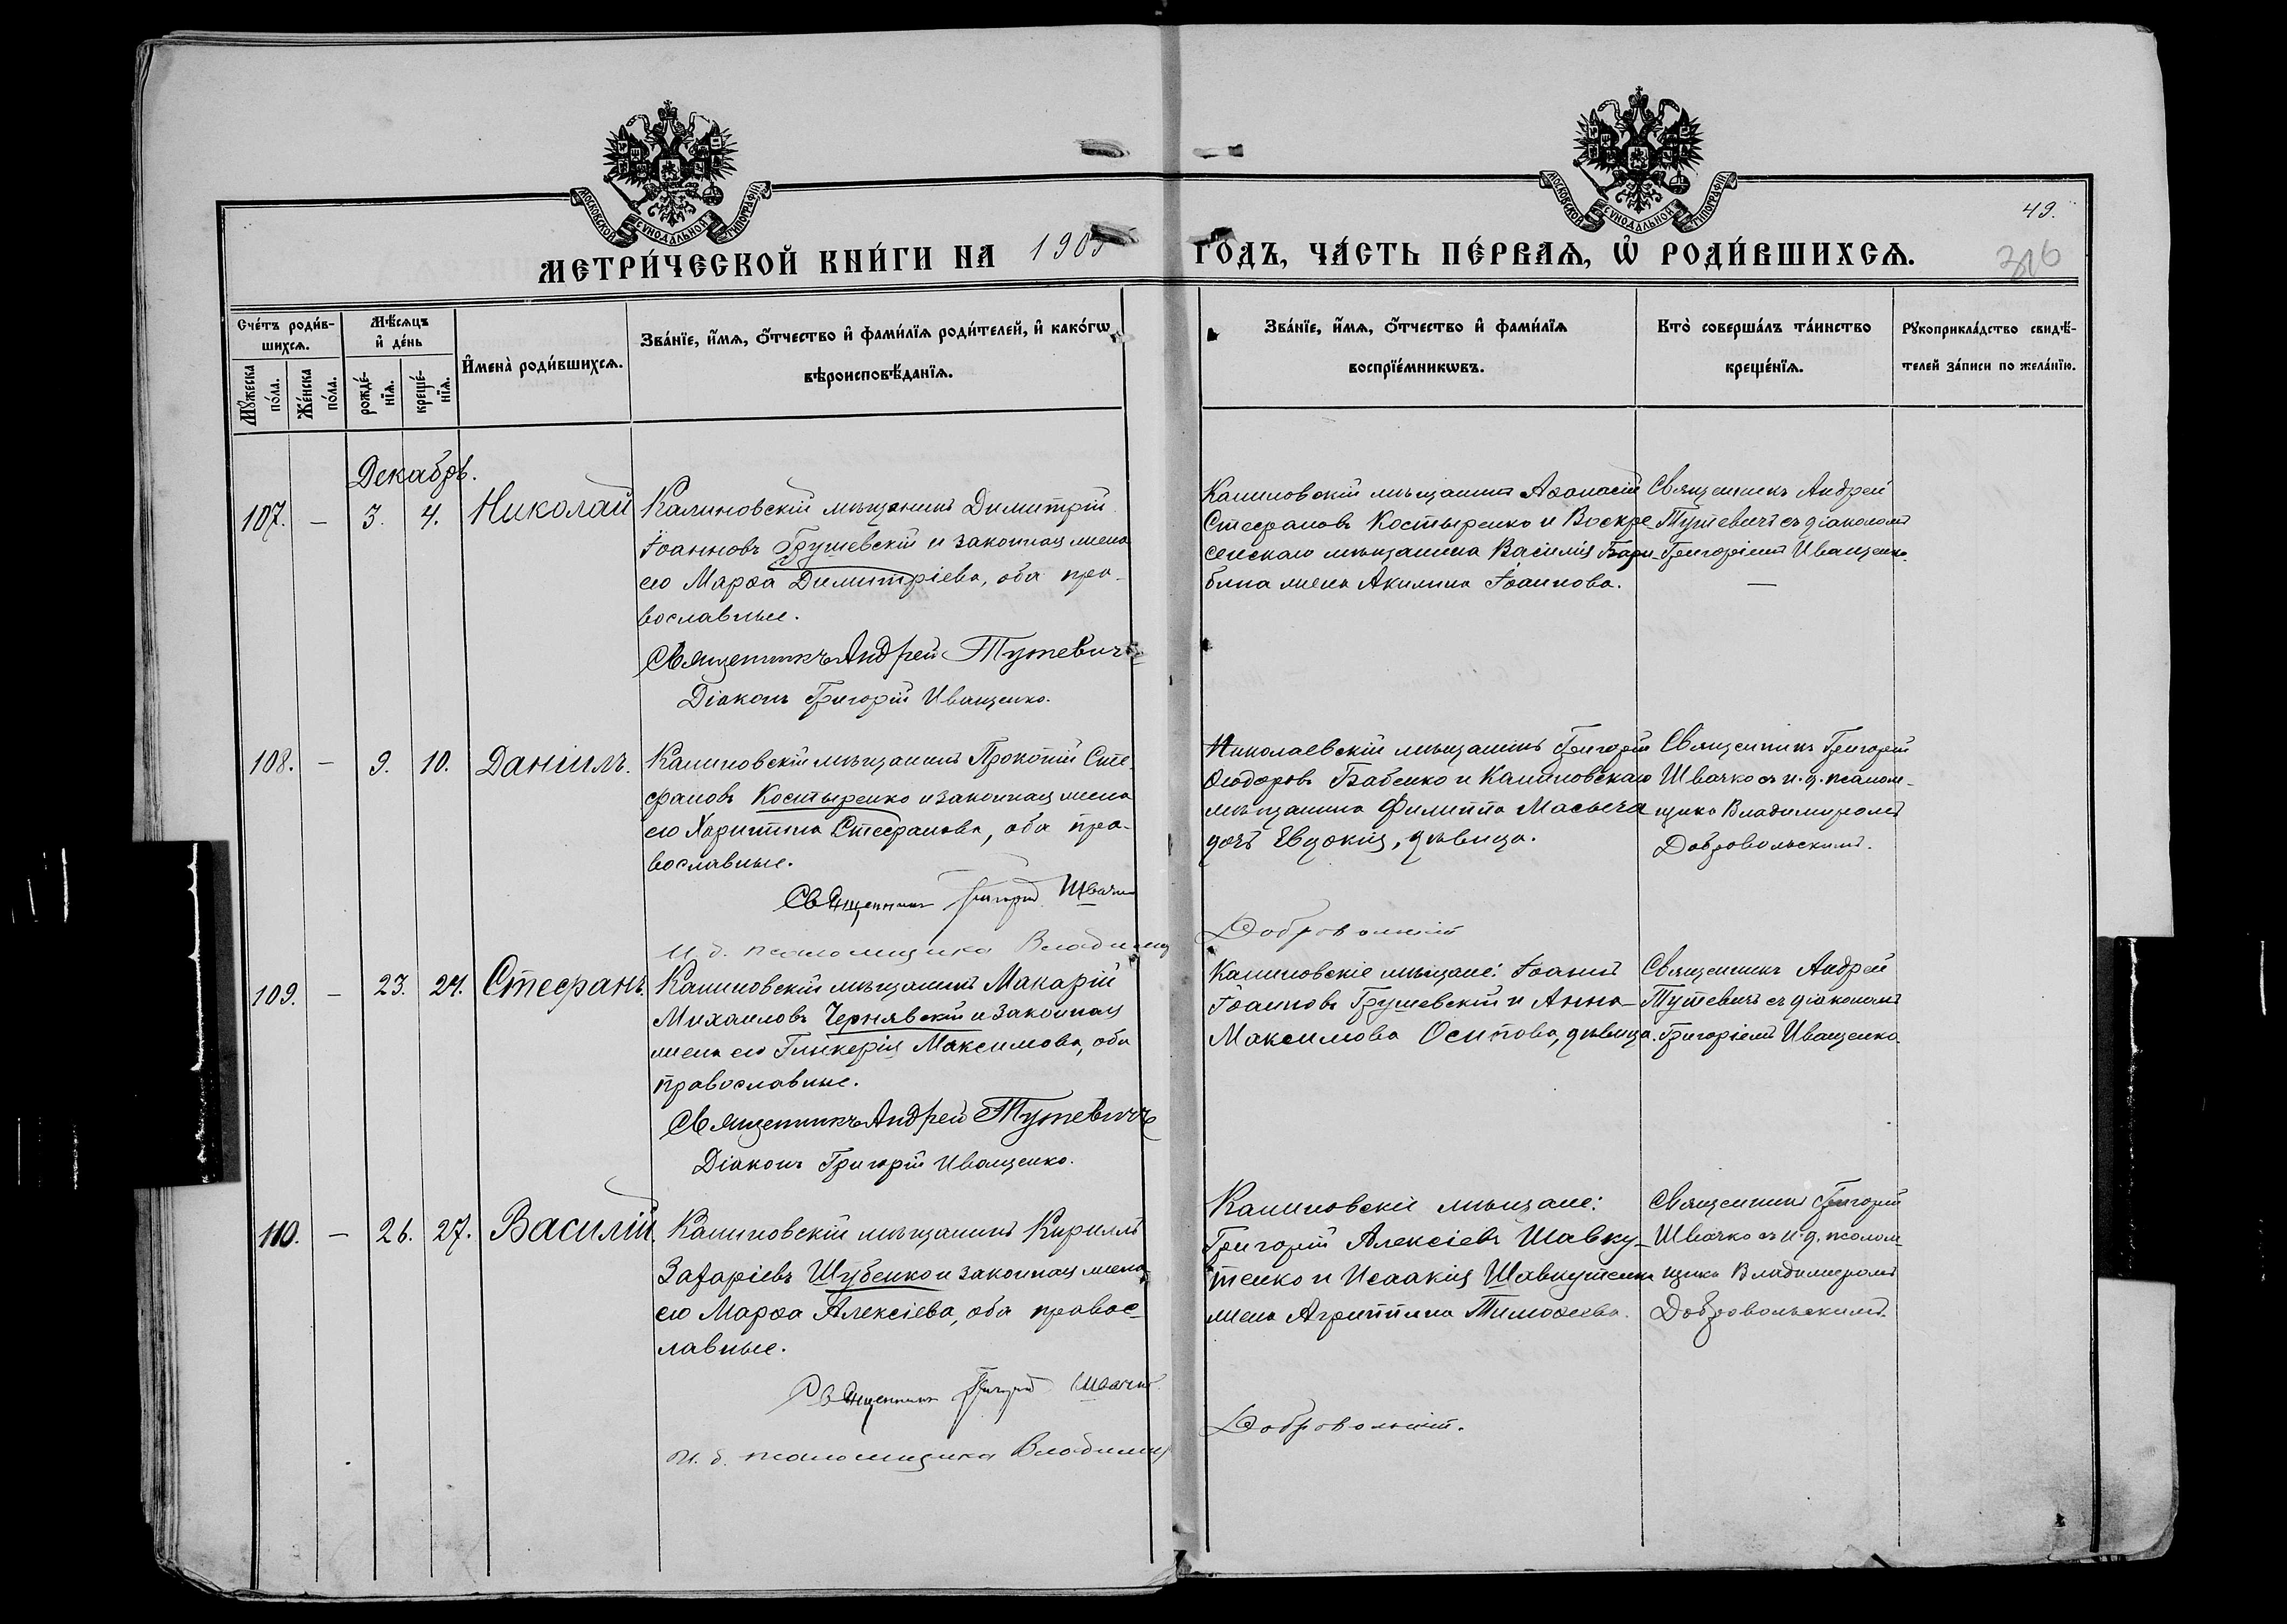 МОСКОВСКОЙ СѴНОДАЛЬНОЙ ТИПОГРАФІИ
МОСКОВСКОЙ СѴНОДАЛЬНОЙ ТИПОГРАФІИ
49.
316
МЕТРИ́ЧЕСКОЙ КНИ́ГИ НА 1905 ГОДЪ, ЧА́СТЬ ПЕ́РВАѦ, Ѡ҆ РОДИ́ВШИХСѦ.
Счéтъ роди́в-
шихсѧ.
Мꙋ́жеска по́ла.
Же́нска по́ла.
Мѣ́сѧцъ
и҆ де́нь
рожде́-
нїѧ.
креще́-
нїѧ.
И҆мена̀ роди́вшихсѧ.
Зва́нїе, и҆́мѧ, ѻ҆́тчество и҆ фами́лїѧ роди́телей, и҆ како́гѡ
вѣроисповѣ́данїѧ.
Зва́нїе, и҆́мѧ, ѻ҆́тчество и҆ фами́лїѧ
воспрїе́мникѡвъ.
Кто̀ соверша́лъ та́инство
креще́нїѧ.
Рꙋкоприкла́дство свидѣ́-
телей за́писи по жела́нїю.
Декабрь.
107. — 3. 4. Николай
Калиновскій мѣщанинъ Димитрій
Іоанновъ Грушевскій и законная жена
его Марѳа Димитріева, оба пра-
вославные.
Священникъ Андрей Тутевичъ
Діаконъ Григорій Иващенко.
Калиновскій мѣщанинъ Аѳанасій
Стефановъ Костыренко и Воскре-
сенскаго мѣщанина Василія Бари-
бина жена Акилина Іоаннова.
Священникъ Андрей
Тутевичъ съ діакономъ
Григоріемъ Иващенко.
—
108. — 9. 10. Даніилъ.
Калиновскій мѣщанинъ Прокопій Сте-
фановъ Костыренко и законная жена
его Харитина Стефанова, оба пра-
вославные.
Священникъ Григорій Швачко
И. д. псаломщика Владимир Добровольскій
Николаевскій мѣщанинъ Григорій
Ѳеодоровъ Бабенко и Калиновскаго
мѣщанина Филиппа Масыча
дочь Евдокія, дѣвица.
Священникъ Григорій
Швачко съ и. д. псалом-
щика Владимиромъ
Добровольскимъ.
109. — 23. 24. Стефанъ.
Калиновскій мѣщанинъ Макарій
Михаиловъ Чернявскій и законная
жена его Гликерія Максимова, оба
православные.
Священникъ Андрей Тутевичъ
Діаконъ Григорій Иващенко.
Калиновскіе мѣщане: Іоаннъ
Іоанновъ Грушевскій и Анна
Максимова Осипова, дѣвица.
Священникъ Андрей
Тутевичъ съ діакономъ
Григоріемъ Иващенко
110. — 26. 27. Василій.
Калиновскій мѣщанинъ Кириллъ
Захаріевъ Шубенко и законная жена
его Марѳа Алексіева, оба правос-
лавные.
Священникъ Григорій Швачко
И. д. псаломщика Владимир Добровольскій.
Калиновскіе мѣщане:
Григорій Алексіевъ Шавку-
тенко и Исаакія Шавкутенки
жена Агриппина Тимоѳеева.
Священникъ Григорій
Швачко съ и. д. псалом-
щика Владимиромъ
Добровольскимъ.